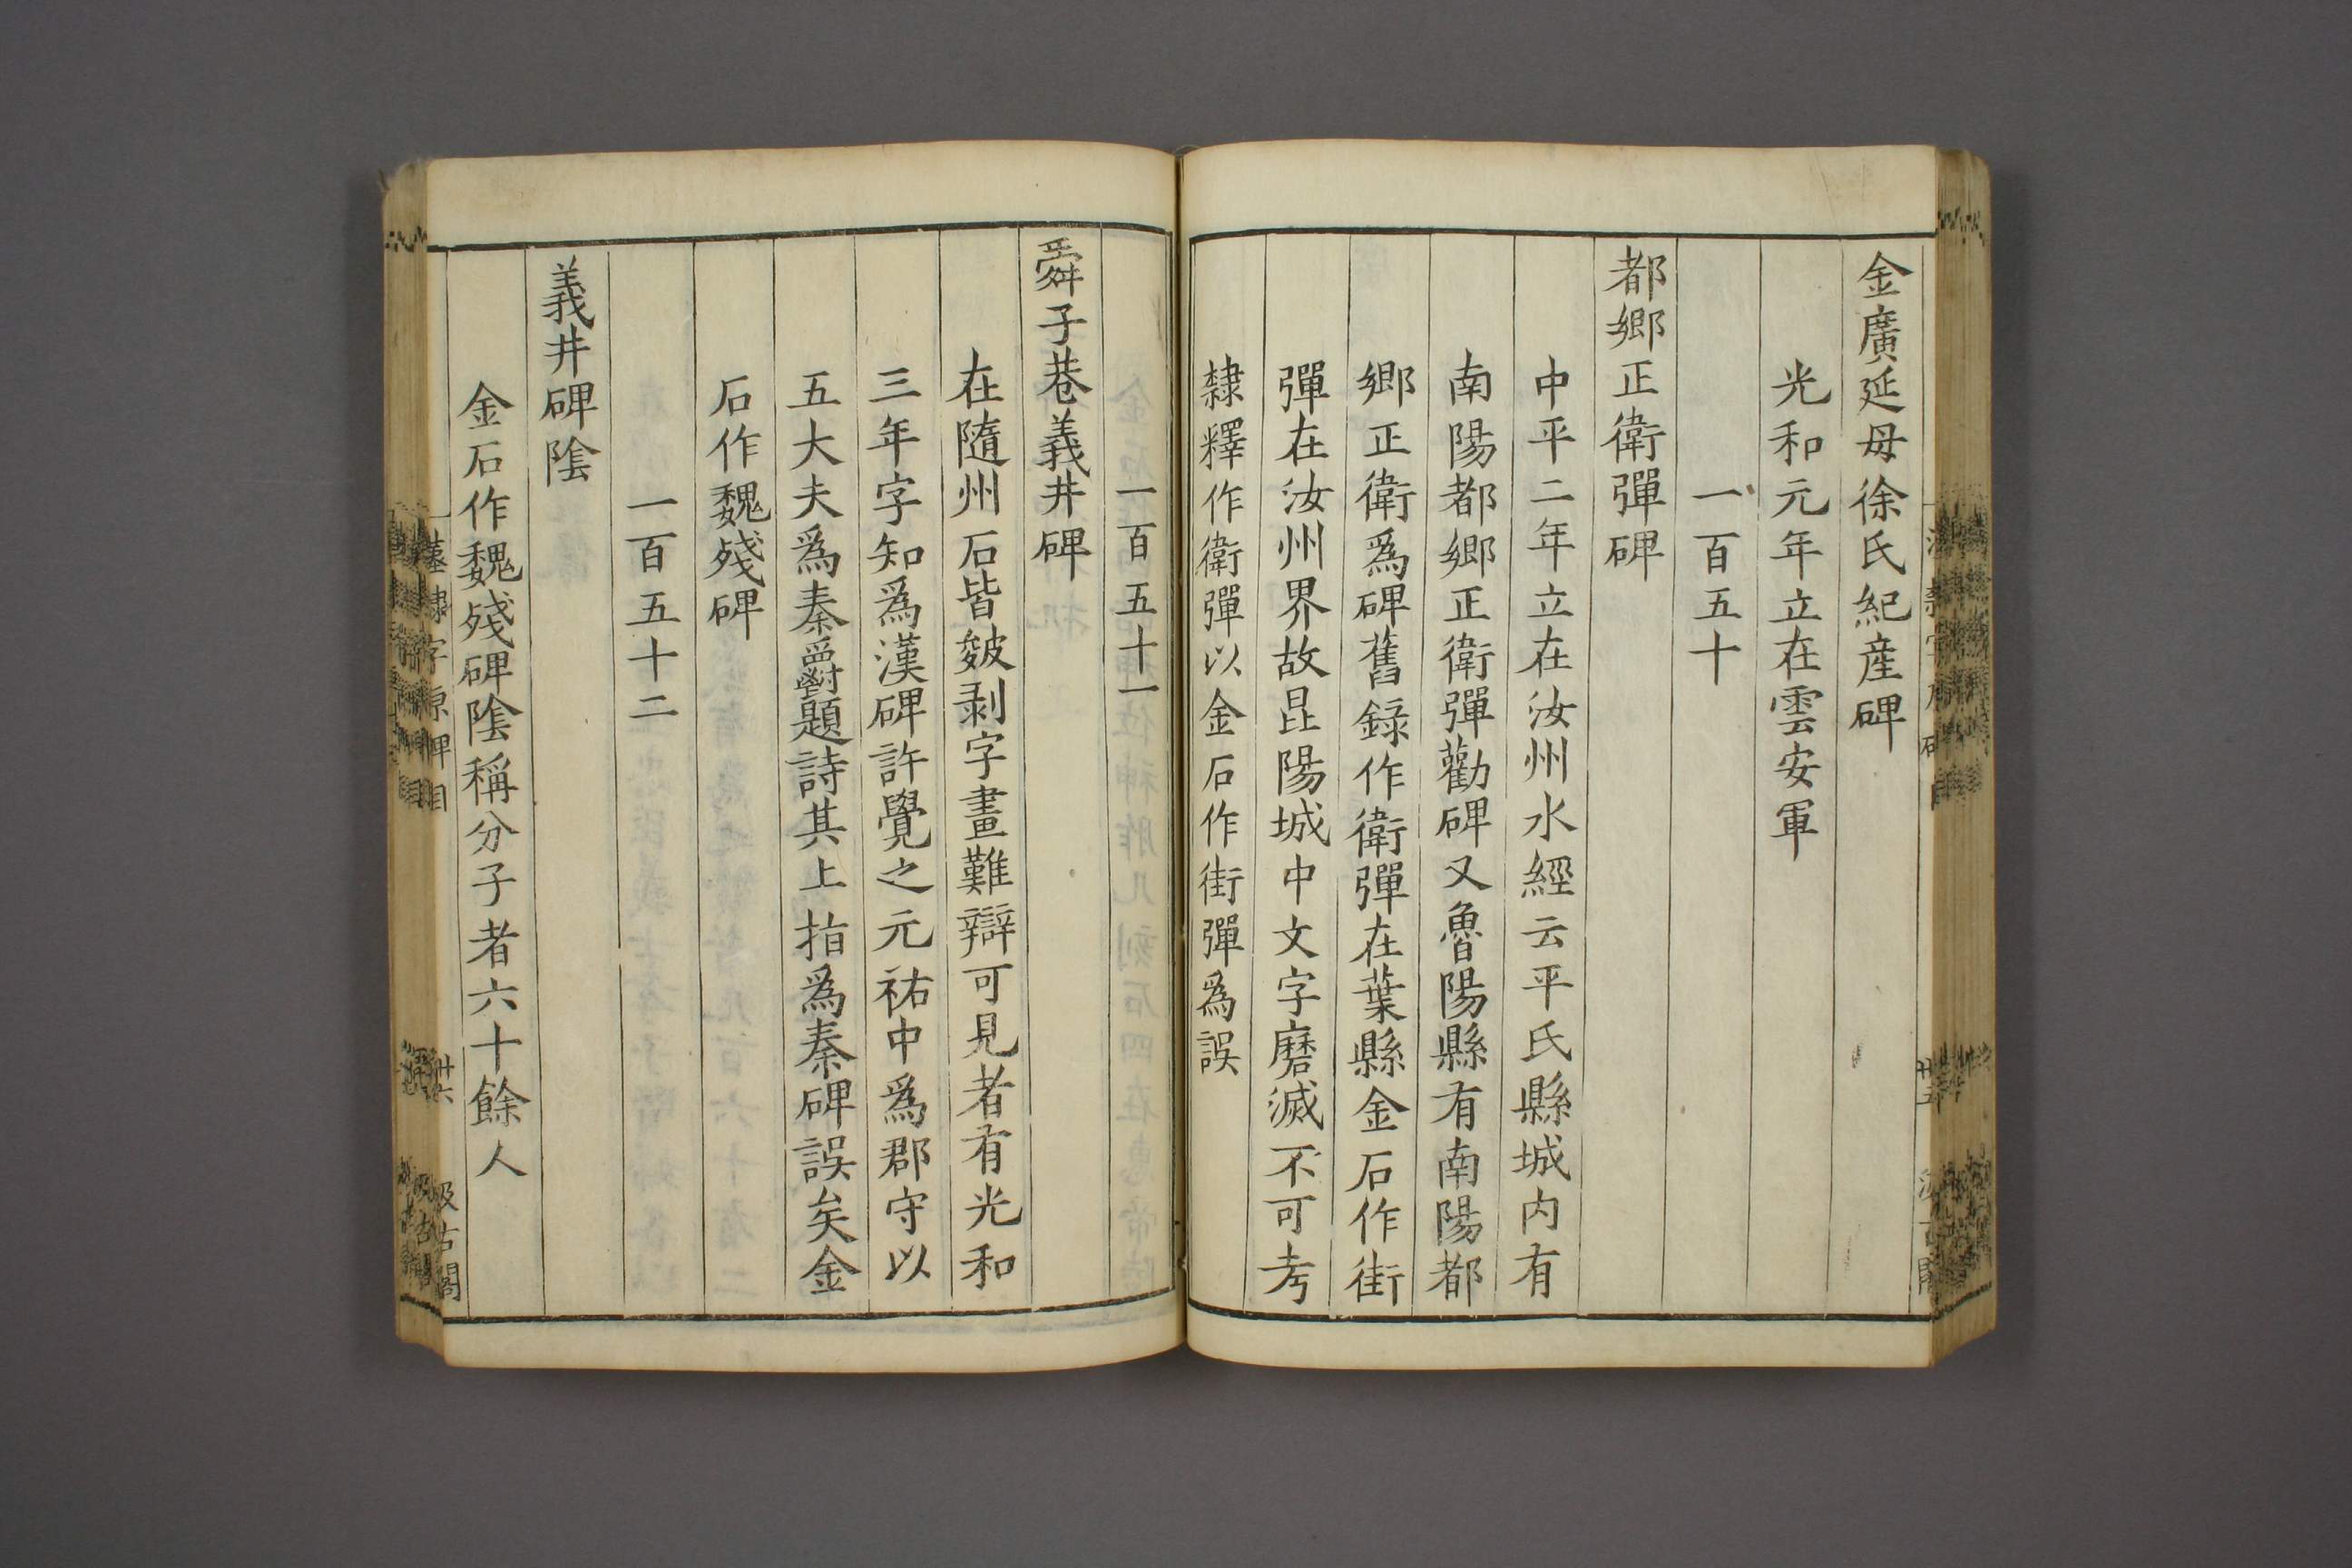 金廣延母徐氏紀産碑
光和元年立在雲安軍
一百五十
都郷正衛彈碑
中平二年立在汝州水經云平氏縣城内有
南陽都郷正衛彈勸碑又魯陽縣有南陽都
郷正衛爲碑舊錄作衛彈在葉縣金石作街
彈在汝州界故昆陽城中文字磨滅不可考
隸釋作衛彈以金石作街彈爲誤
一百五十一
舜子巷義井碑
在隨州石皆皴剥字畫難辯可見者有光和
三年字知爲漢碑許覺之元祐中爲郡守以
五大夫爲秦爵題詩其上指爲秦碑誤矣金
石作魏殘碑
一百五十二
義井碑陰
金石作魏殘碑陰稱分子者六十餘人
隸字原碑目
卅六
汲古閣